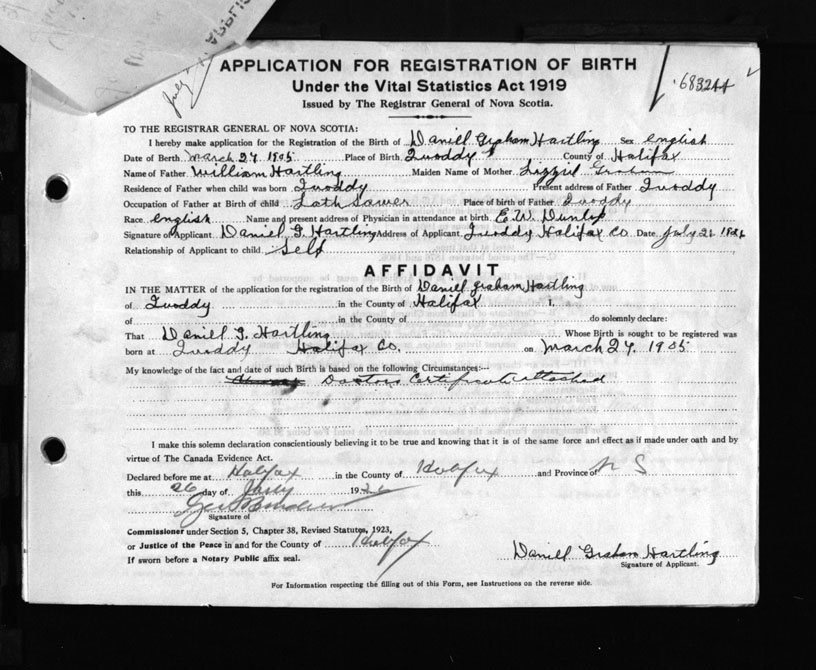 July
APPLICATION FOR REGISTRATION OF BIRTH
Under the Vital Statistics Act 1919
Issued by The Registrar General of Nova Scotia.
683244
TO THE REGISTRAR GENERAL OF NOVA SCOTIA:
I hereby make application for the Registration of the Birth of Daniel Graham Hartling Sex english
Date of Birth March 27 1905 Place of Birth Quoddy County of Halifax
Name of Father William Hartling Maiden Name of Mother Lizzie Graham
Residence of Father when child was born Quoddy Present address of Father Quoddy
Occupation of Father at Birth of child Lath Sawer Place of birth of Father Quoddy
Race english Name and present address of Physician in attendance at birth E.W. Dunlop
Signature of Applicant Daniel G. Hartling Address of Applicant Quoddy Halifax Co Date July 21
Relationship of Applicant to child Self
AFFIDAVIT
IN THE MATTER of the application for the registration of the Birth of Daniel Graham Hartling
of Quoddy in the County of Halifax I,
of in the County of do solemnly declare:
That Daniel G. Hartling Whose Birth is sought to be registered was
born at Quoddy Halifax Co. on March 27. 1905
My knowledge of the fact and date of such Birth is based on the following Circumstances:—
Doctors Certificate attached
I make this solemn declaration conscientiously believing it to be true and knowing that it is of the same force and effect as if made under oath and by
virtue of The Canada Evidence Act.
Declared before me at Halifax in the County of Halifax and Province of N S
this 26 day of July 1926
Signature of
Commissioner under Section 5, Chapter 38, Revised Statutes, 1923,
or Justice of the Peace in and for the County of Halifax
If sworn before a Notary Public affix seal.
Daniel Graham Hartling
Signature of Applicant.
For Information respecting the filling out of this Form, see Instructions on the reverse side.